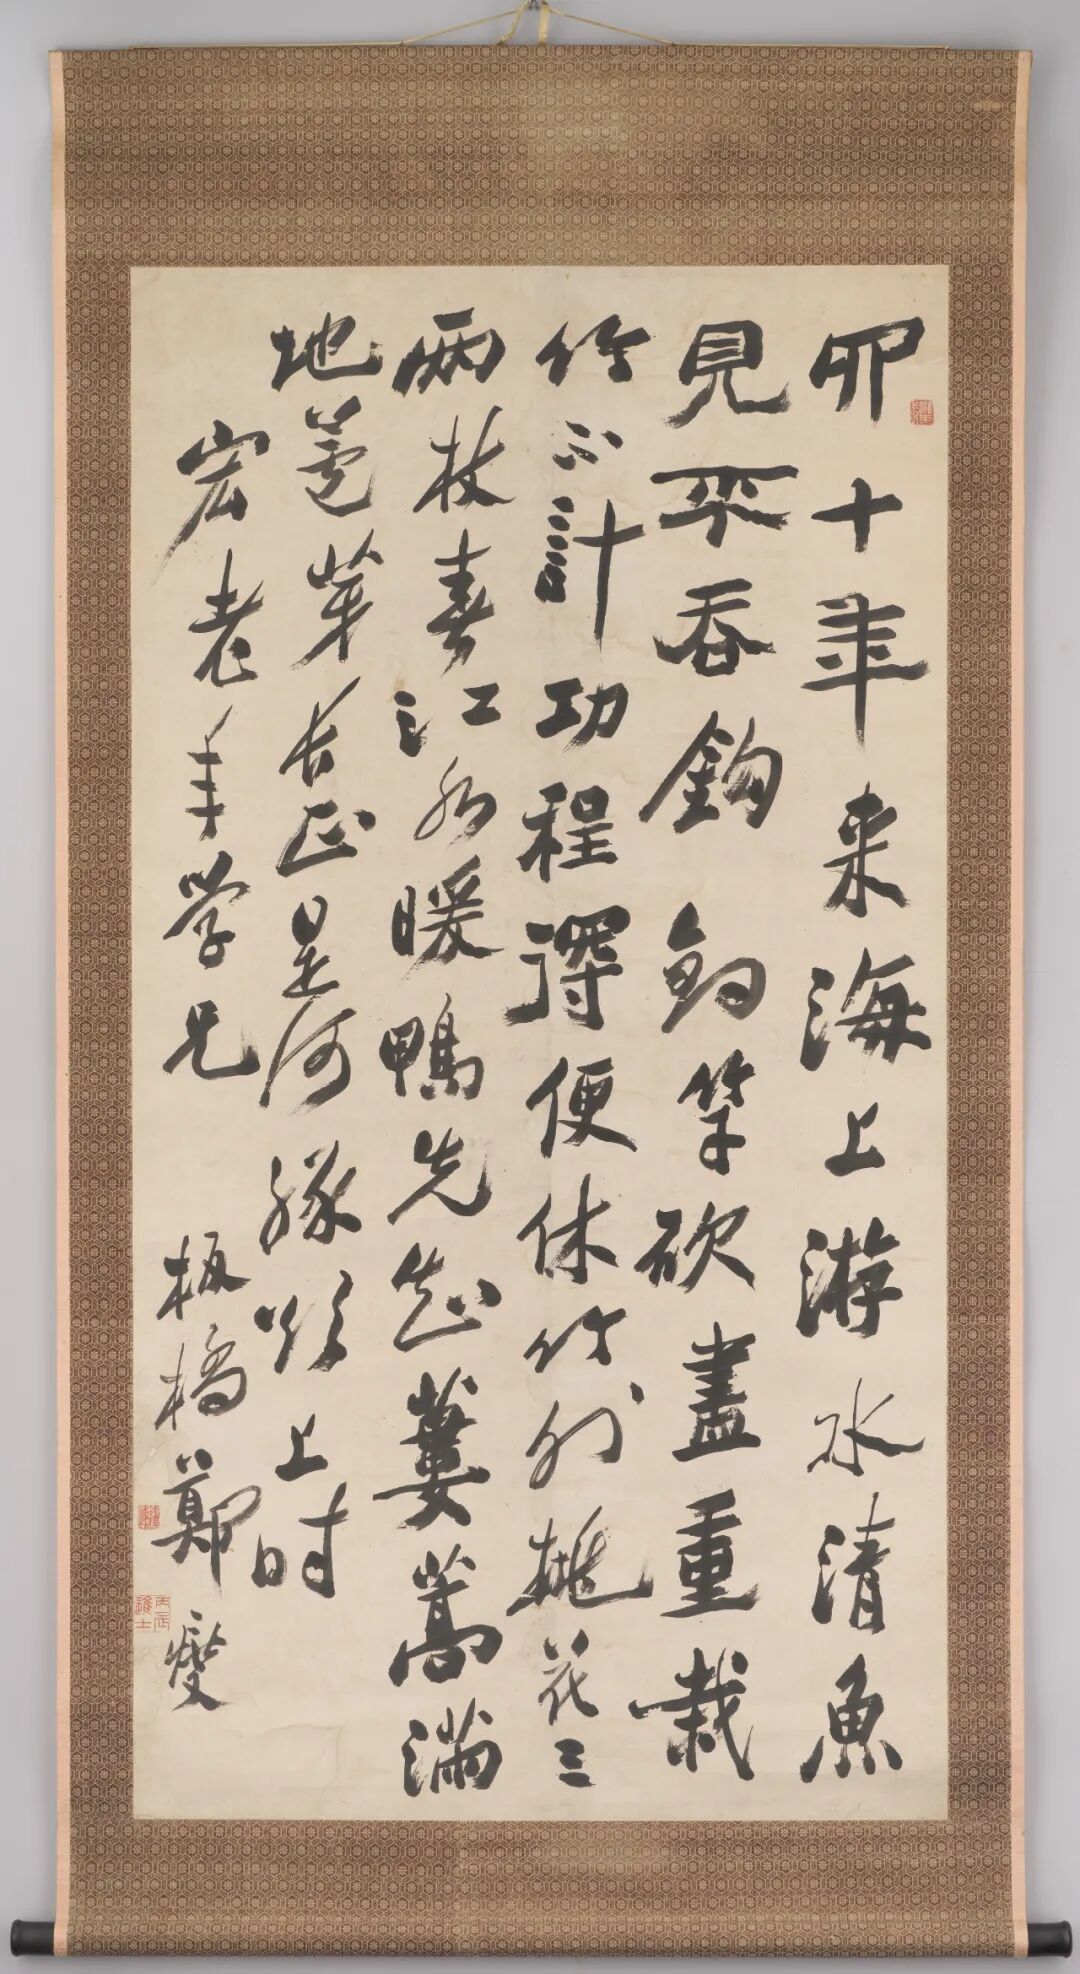 四十年来海上游水清魚
見不吞鈎釣竿砍盡重栽
竹不計功程得便休竹外桃花三
兩枝春江水暖鴨先知蔞蒿滿
地芦芽长正是河豚欲上时
宏老年学兄 板橋鄭燮
丙辰進士